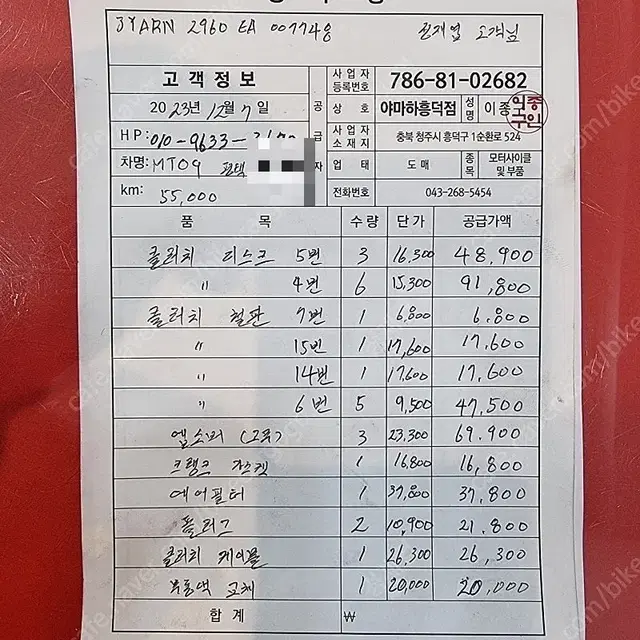 JYARN 2960 EA 007748 전재엽 고객님
고객정보
2023년 12월 7일
HP: 010-9633-
차명: MT09 평택
km: 55,000
공급자
사업자등록번호 786-81-02682
상호 야마하흥덕점 성명 이종
사업자소재지 충북 청주시 흥덕구 1순환로 524
업태 도매 종목 모터사이클 및 부품
전화번호 043-268-5454
품목 수량 단가 공급가액
클러치 디스크 5번 3 16,300 48,900
〃 4번 6 15,300 91,800
클러치 철판 7번 1 6,800 6,800
〃 15번 1 17,600 17,600
〃 14번 1 17,600 17,600
〃 6번 5 9,500 47,500
엠소리 (2루) 3 23,300 69,900
크랭크 가스켓 1 16,800 16,800
에어필터 1 37,800 37,800
플러그 2 10,900 21,800
클러치 케이블 1 26,300 26,300
부동액 교체 1 20,000 20,000
합계 ₩